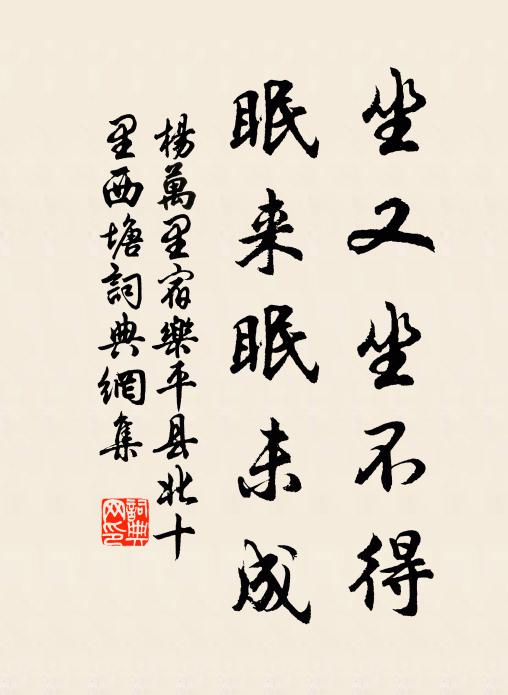 坐又坐不得
眠来眠未成
楊萬里宿樂平县北十
里西塘詞典網集
詞典
网印